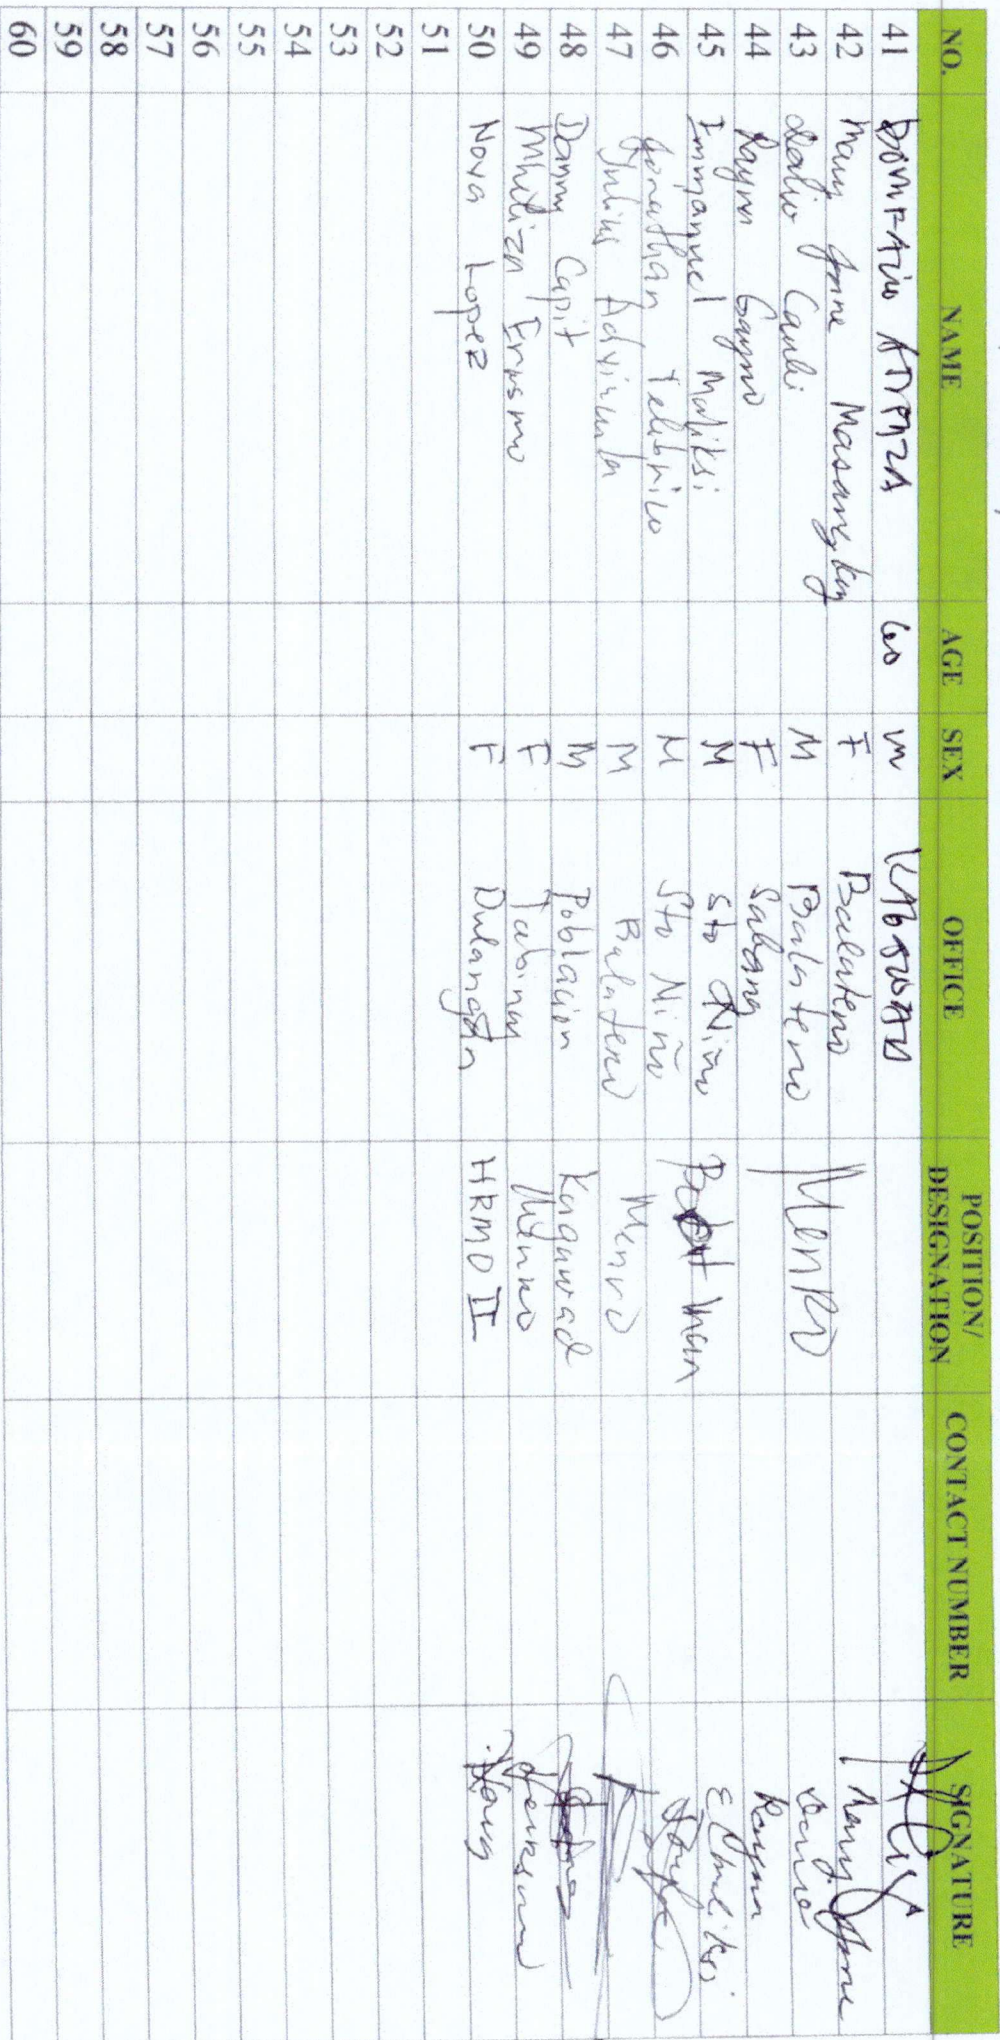 NO. NAME AGE SEX OFFICE POSITION/ DESIGNATION CONTACT NUMBER SIGNATURE
41 60 M
42 Mary Jane Masangkay F Balatero Mary Jane
43 Dalio M Balatero MENRO
44 Rayna Gayno F Sabang Rayna
45 Immanuel Maliksi M Sto Niño
46 Jonathan Telebrico M Sto Niño Boat man
47 Julius Advincula M Balatero Menro
48 Danny Capit M Poblacion Kagawad
49 Mhiliza Erasmo F Tabinay Menro
50 Nova Lopez F Dulangan HRMO II Nova
51
52
53
54
55
56
57
58
59
60